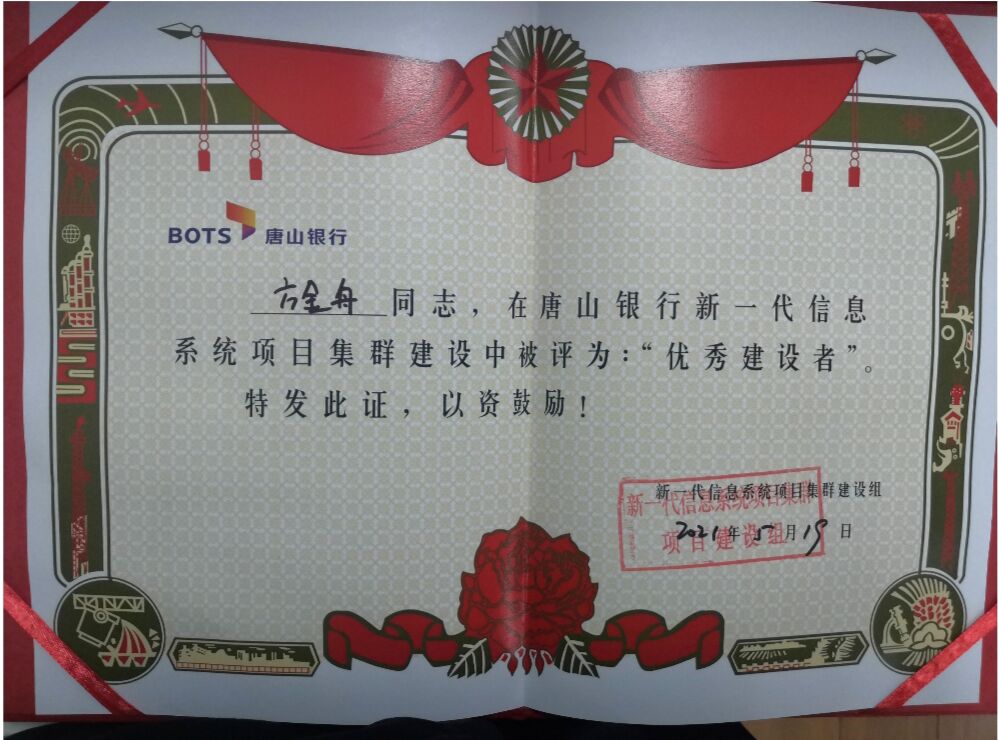 BOTS 唐山银行
方金舟同志，在唐山银行新一代信息
系统项目集群建设中被评为：“优秀建设者”。
特发此证，以资鼓励！
新一代信息系统项目集群建设组
2021年5月19日
新一代信息系统项目集群
项目建设组